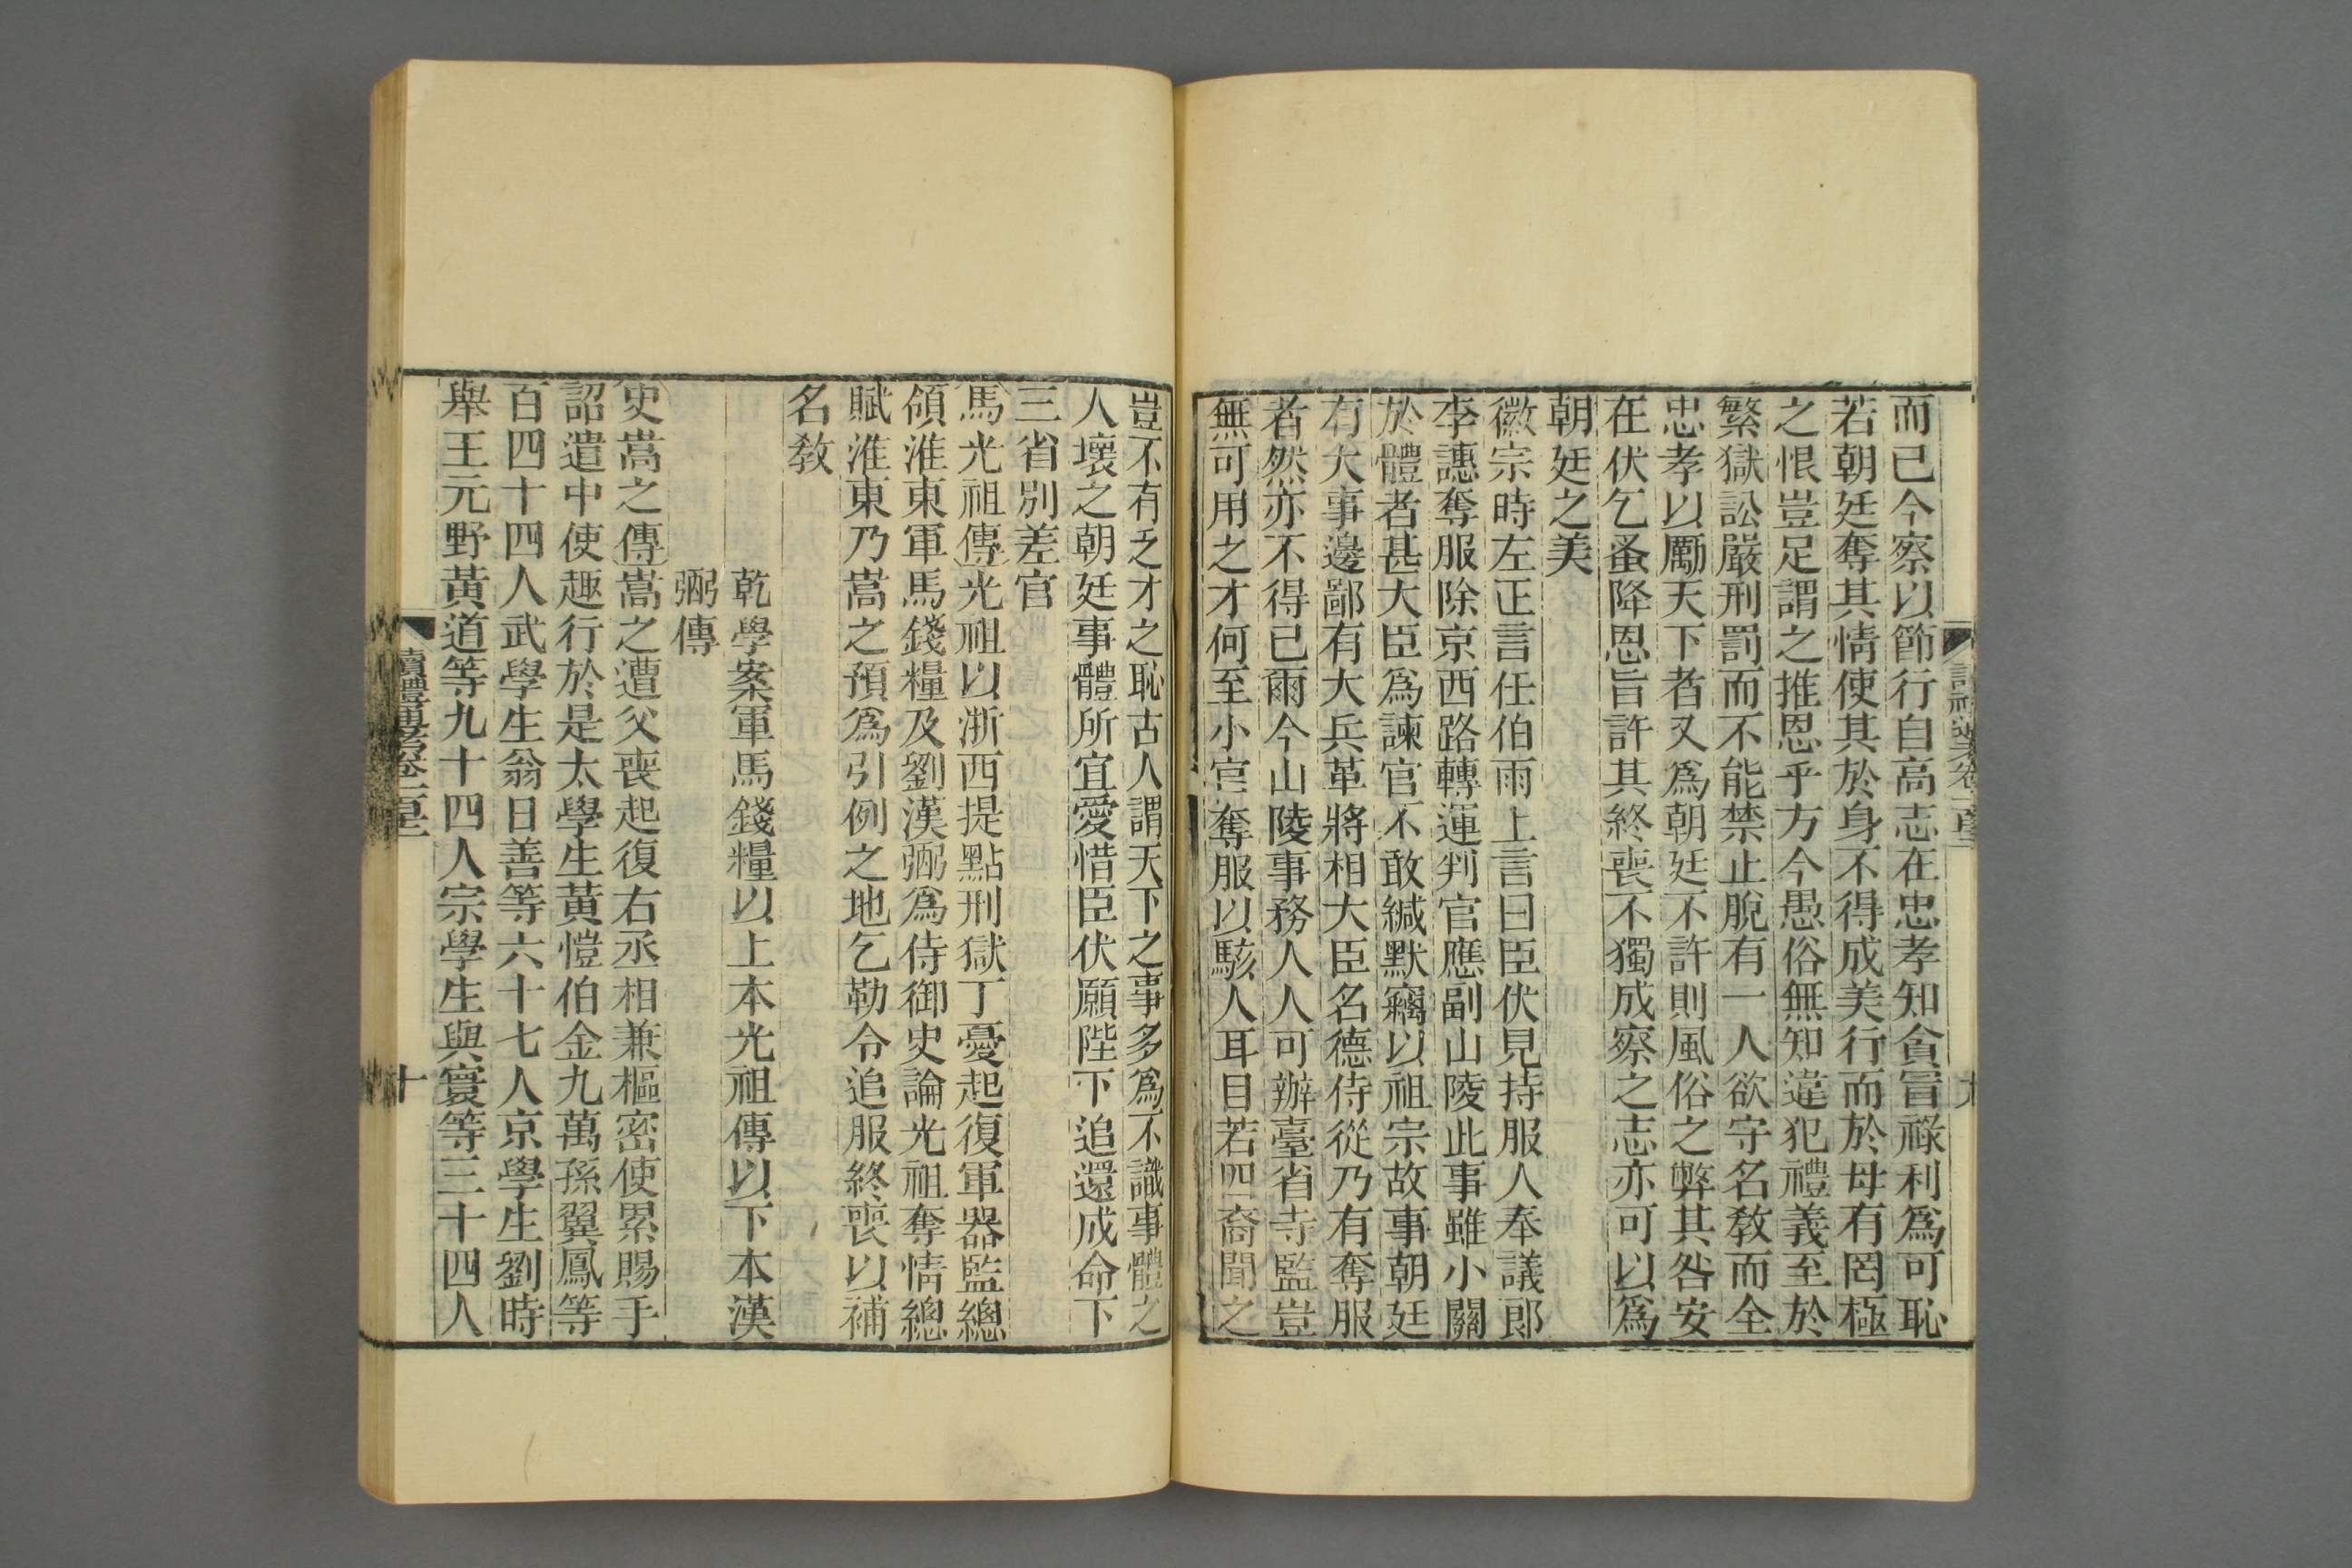 而已今察以節行自高志在忠孝知貪冒祿利爲可恥
若朝廷奪其情使其於身不得成美行而於母有罔極
之恨豈足謂之推恩乎方今愚俗無知違犯禮義至於
繁獄訟嚴刑罰而不能禁止脫有一人欲守名敎而全
忠孝以勵天下者又爲朝廷不許則風俗之弊其咎安
在伏乞蚤降恩旨許其終喪不獨成察之志亦可以爲
朝廷之美
徽宗時左正言任伯雨上言曰臣伏見持服人奉議郎
李譓奪服除京西路轉運判官應副山陵此事雖小關
於體者甚大臣爲諫官不敢緘默竊以祖宗故事朝廷
有大事邊鄙有大兵革將相大臣名德侍從乃有奪服
者然亦不得已爾今山陵事務人人可辦臺省寺監豈
無可用之才何至小官奪服以駭人耳目若四裔聞之
豈不有乏才之恥古人謂天下之事多爲不識事體之
人壞之朝廷事體所宜愛惜臣伏願陛下追還成命下
三省別差官
馬光祖傳光祖以浙西提點刑獄丁憂起復軍器監總
領淮東軍馬錢糧及劉漢弼爲侍御史論光祖奪情總
賦淮東乃嵩之預爲引例之地乞勒令追服終喪以補
名敎
乾學案軍馬錢糧以上本光祖傳以下本漢
弼傳
史嵩之傳嵩之遭父喪起復右丞相兼樞密使累賜手
詔遣中使趣行於是太學生黃愷伯金九萬孫翼鳳等
百四十四人武學生翁日善等六十七人京學生劉時
舉王元野黃道等九十四人宗學生與寰等三十四人
讀禮通考卷一百十二
十